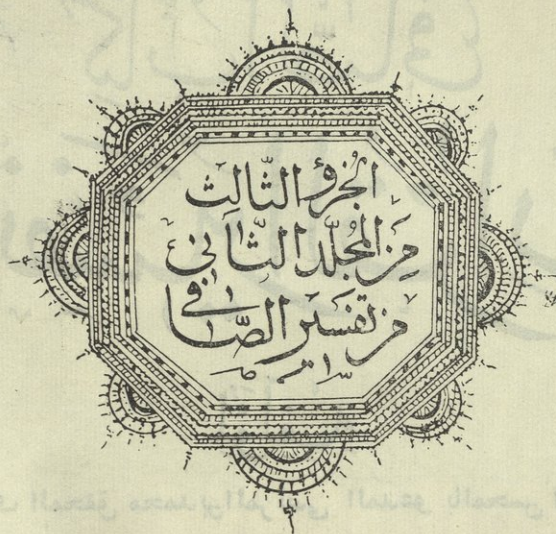 الجُزءُ الثَّالِث
مِنَ المُجلّد الثَّاني
من تفسير الصَّافي